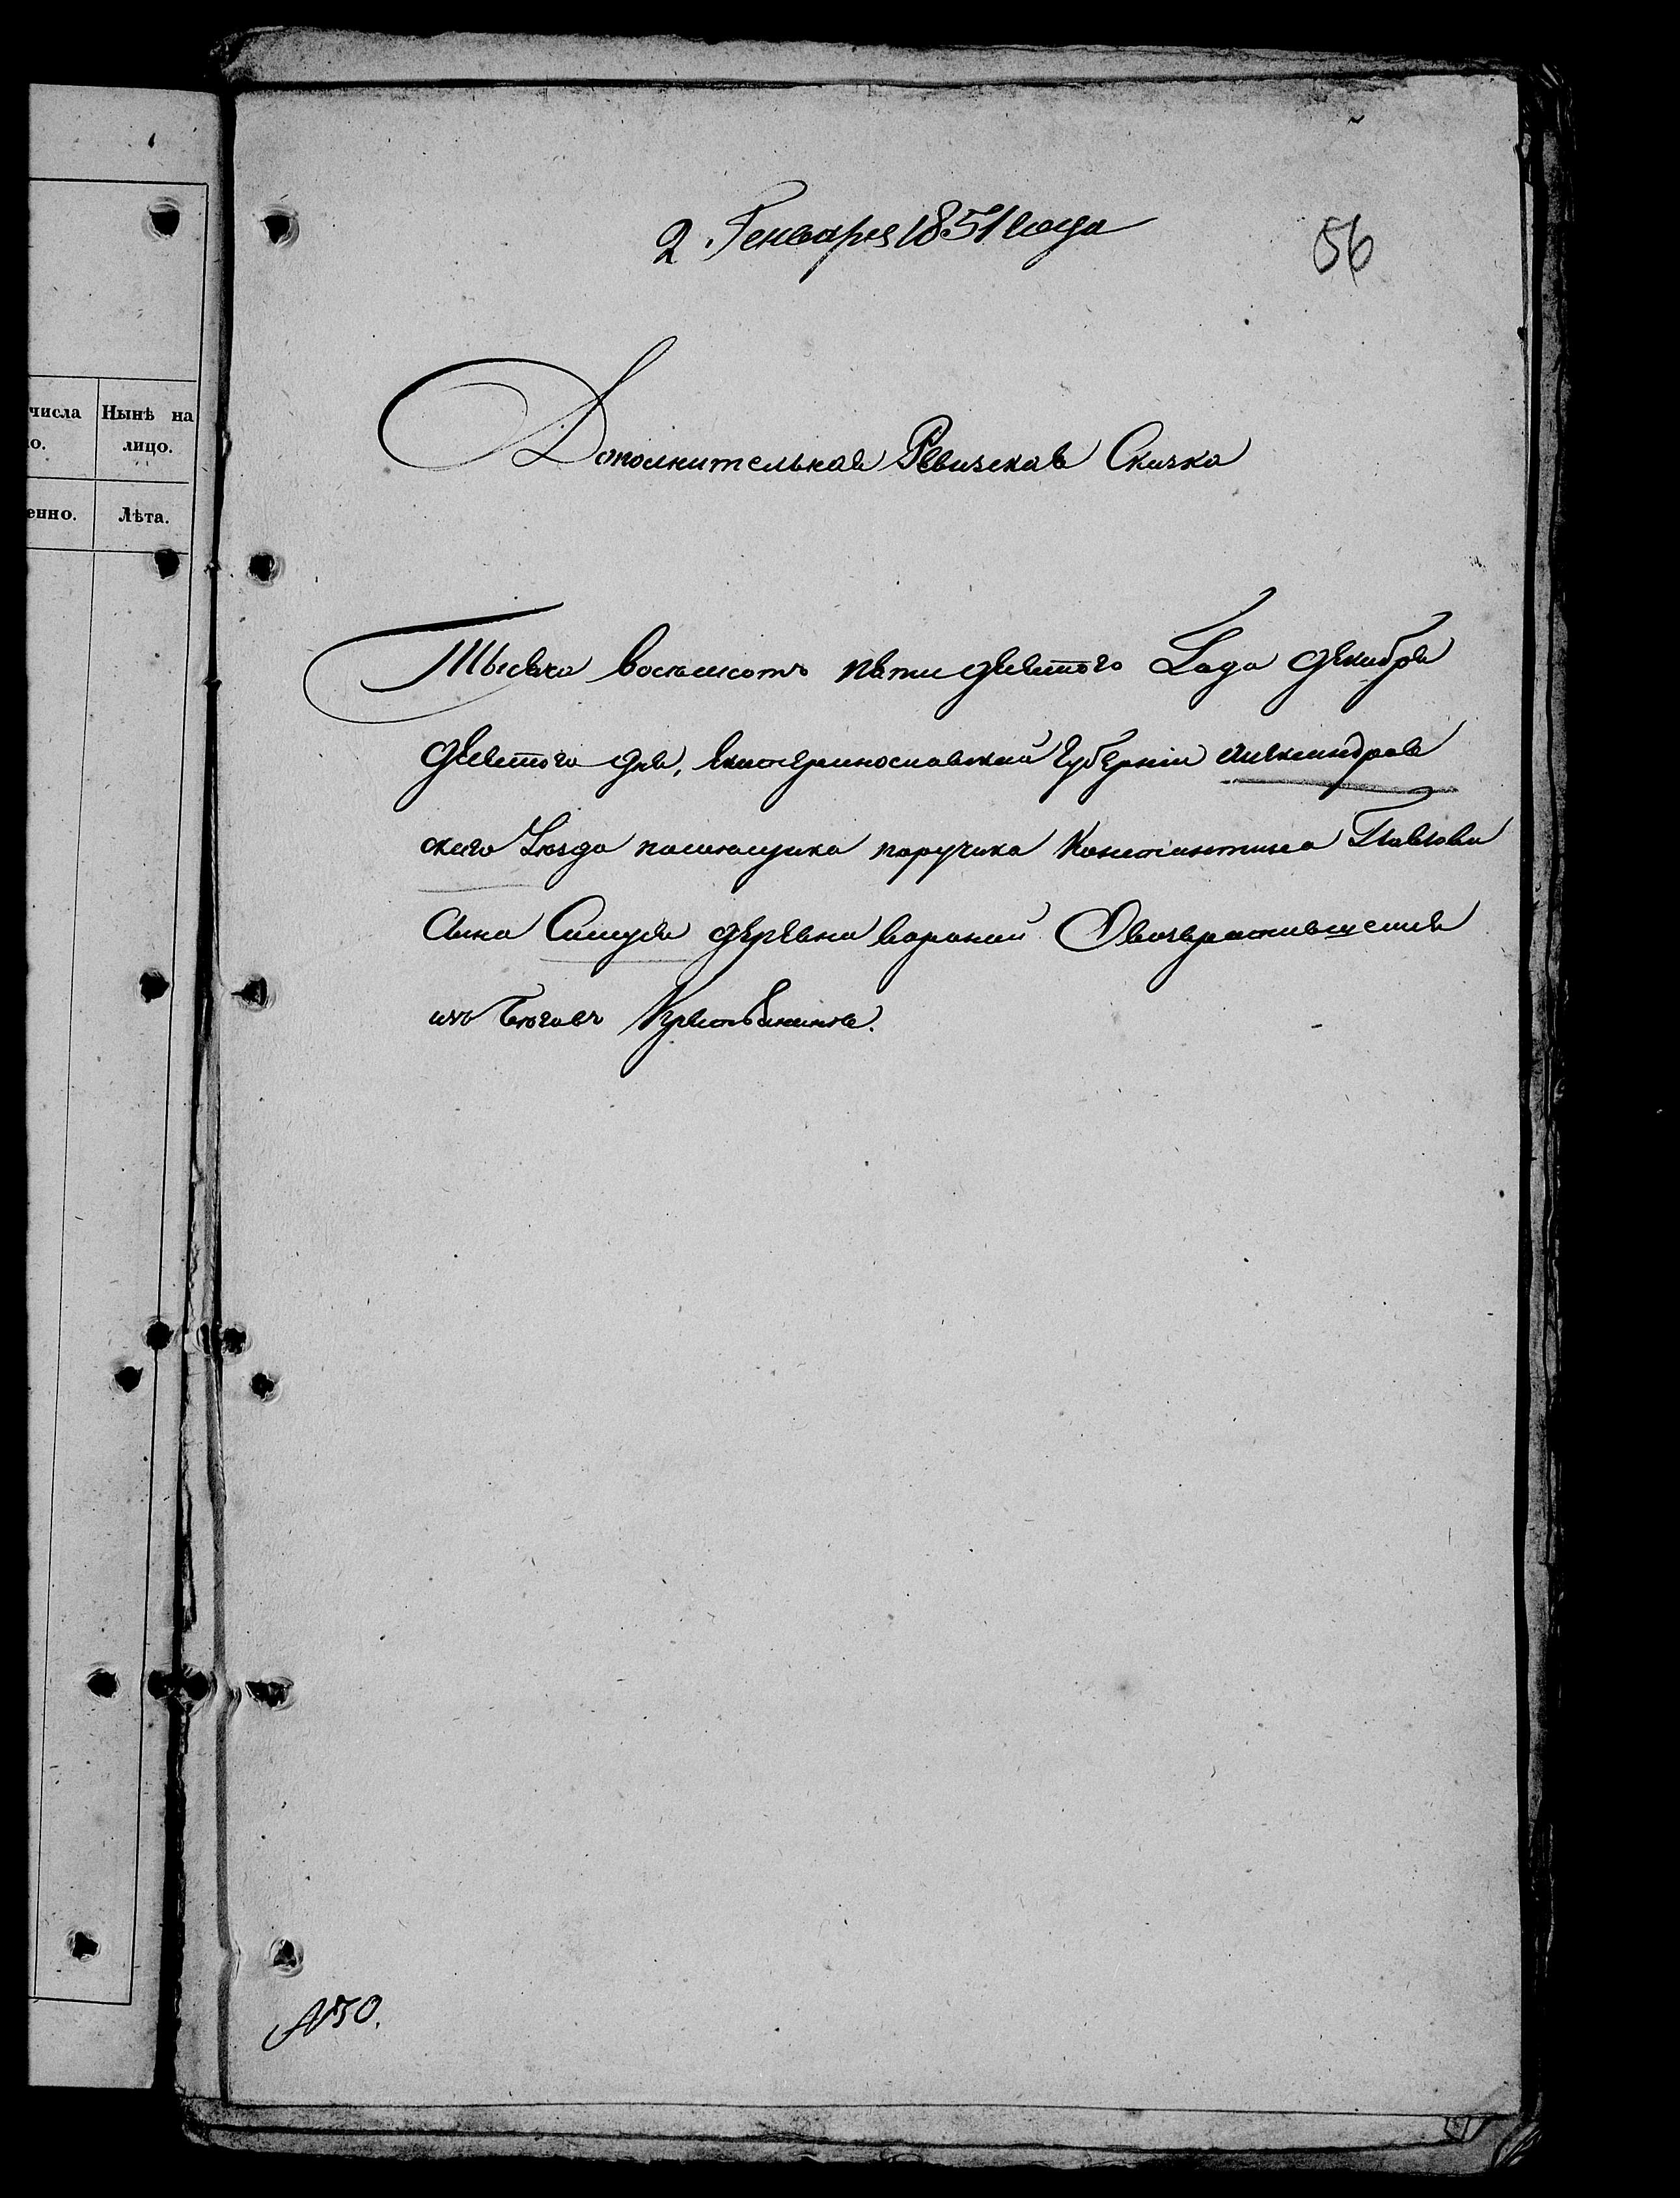 числа Нынѣ на
о. лицо.
енно. Лѣта.
2. Генваря 1851 года
56
Дополнительная Ревизская Скаска
Тысяча восемсотъ пятидесятого Года декабря
девятого дня, Екатеринославской Губерніи Александров
скаго Уезда помещика поручика Константина Павлова
Сына деревни вороной О возвратившемся
изъ Беговъ Крестьянине.
№30.